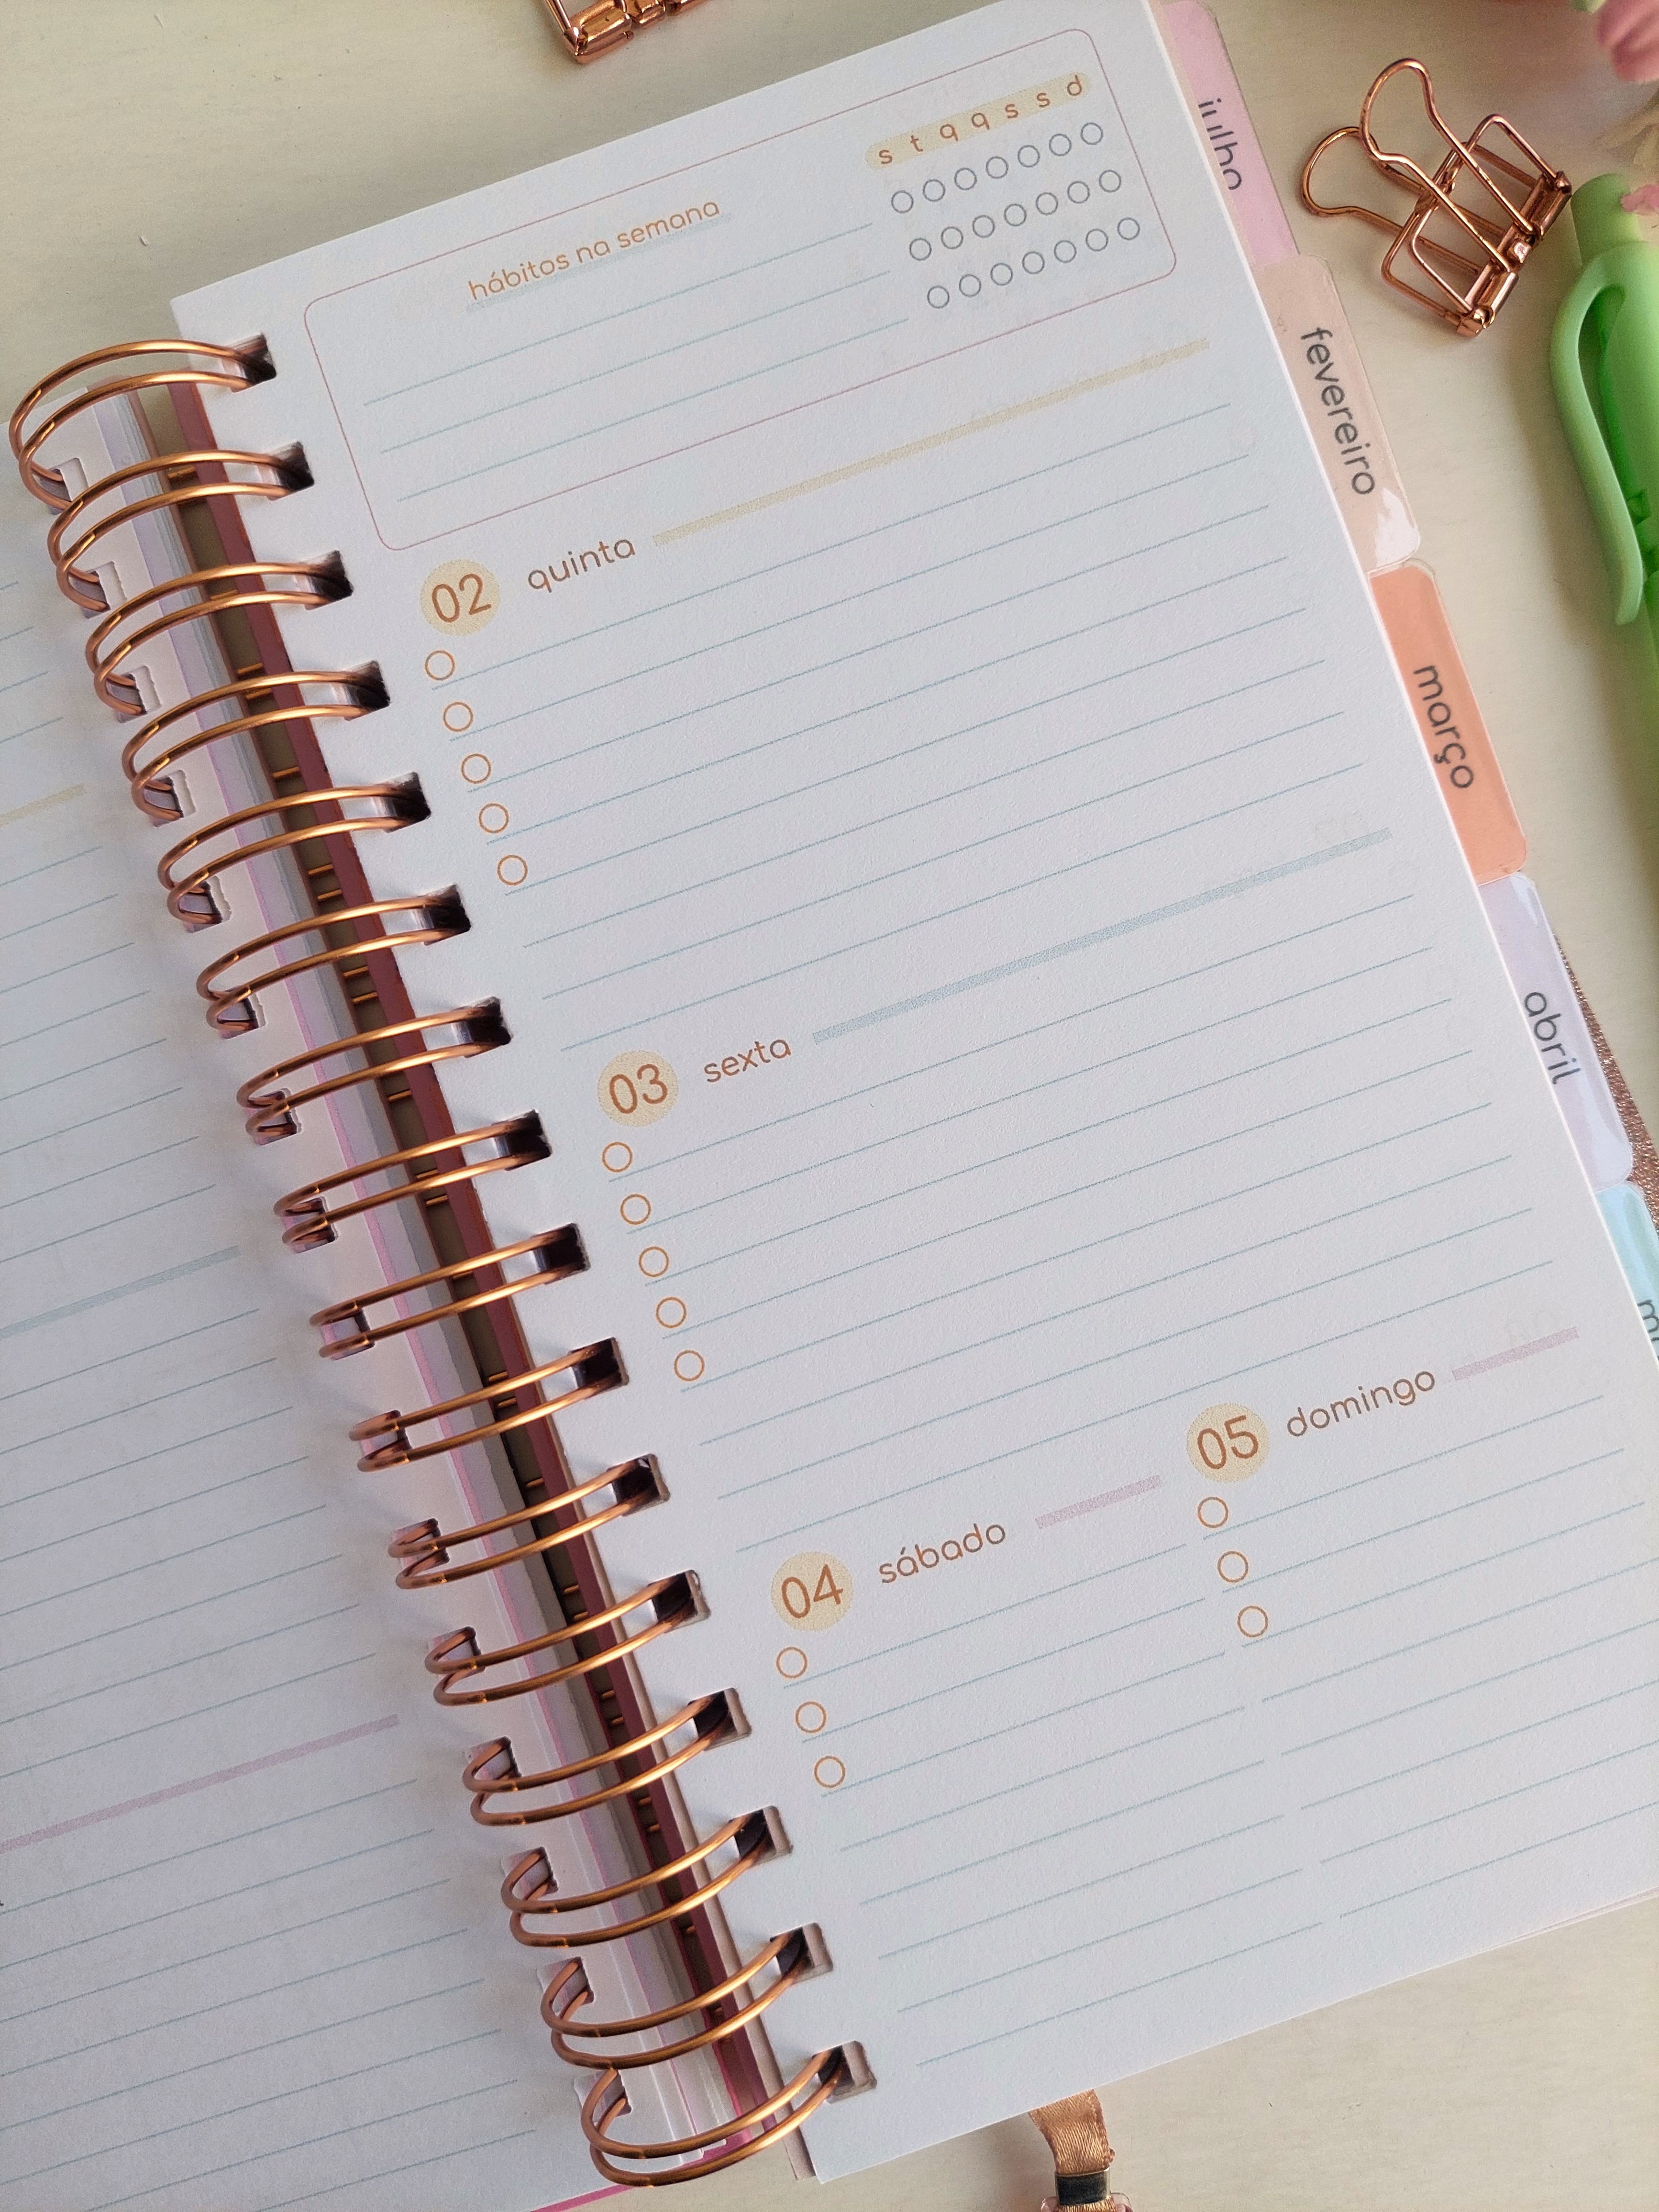 s t q q s s d
hábitos na semana
02 quinta
03 sexta
04 sábado
05 domingo
julho
fevereiro
março
abril